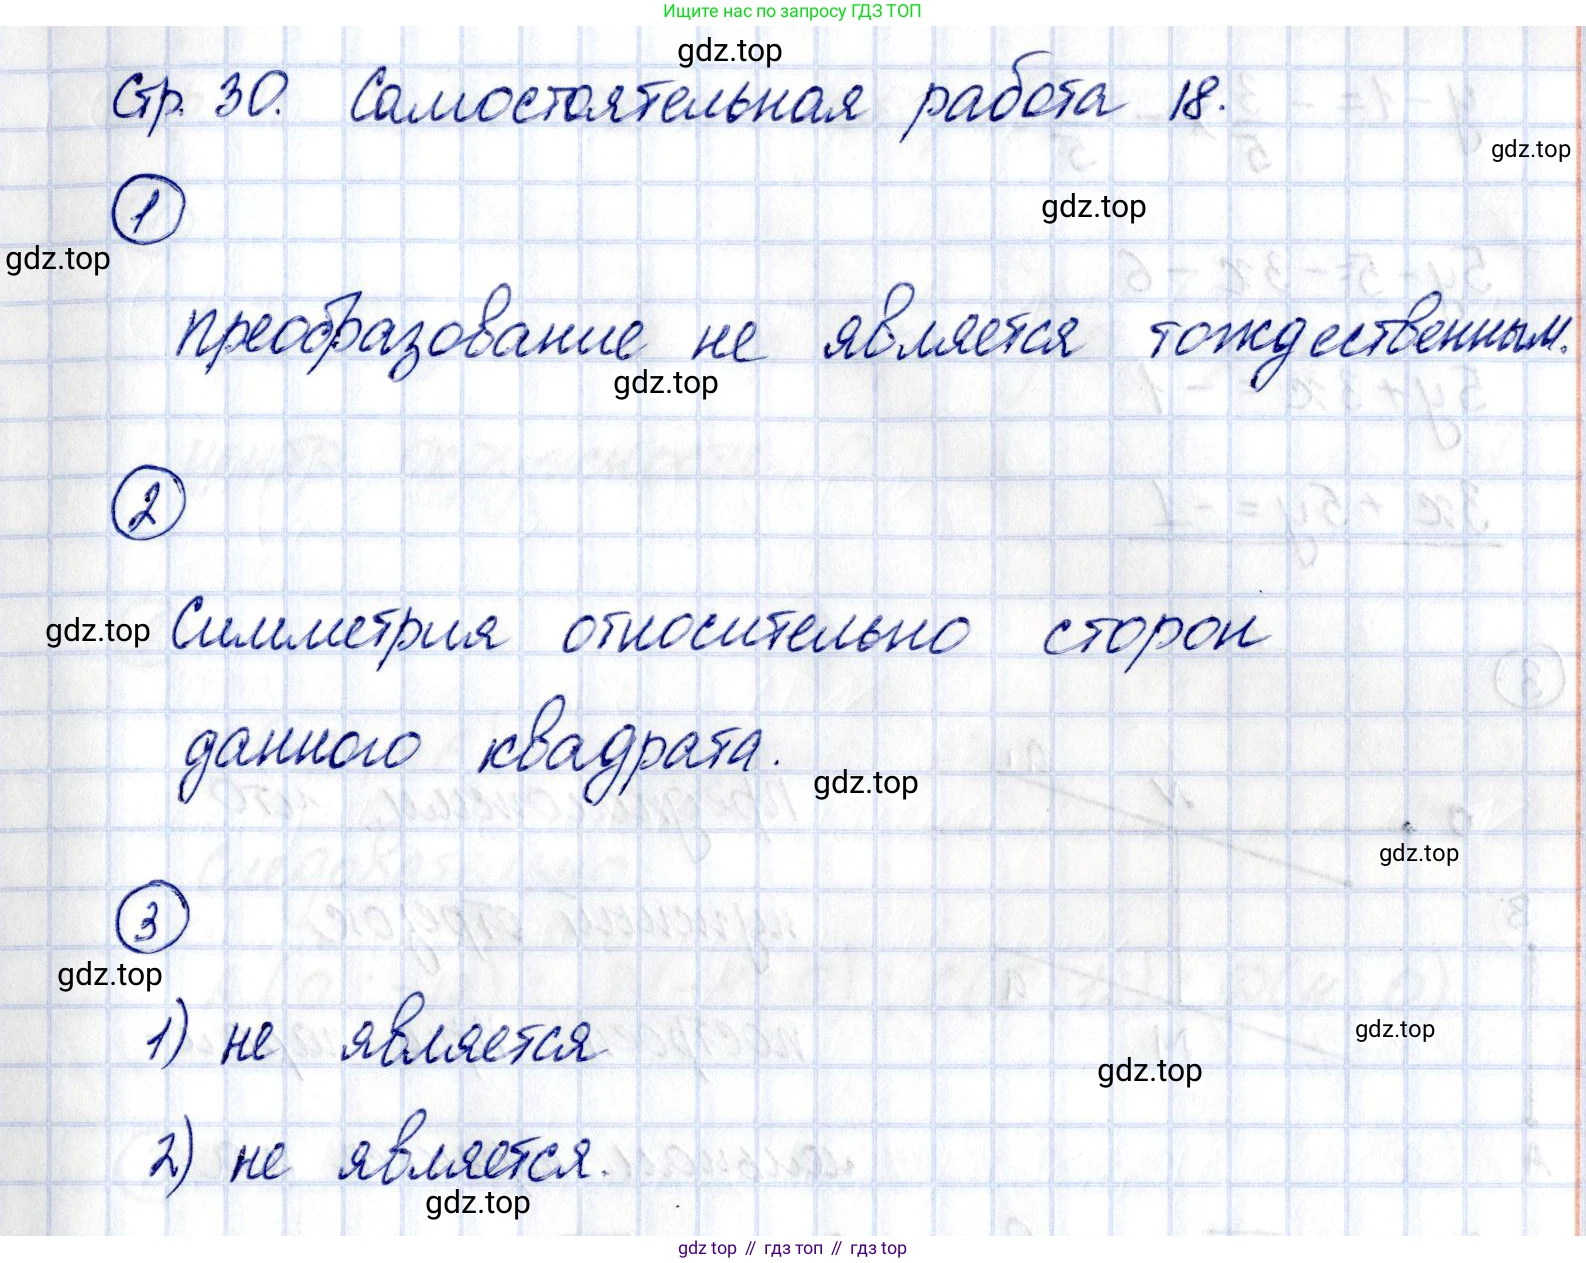 Ищите нас по запросу ГДЗ ТОП
gdz.top
Стр. 30. Самостоятельная работа 18.
gdz.top
1
gdz.top
gdz.top
преобразование не является тождественным.
gdz.top
2
gdz.top
Симметрия относительно сторон
данного квадрата.
gdz.top
gdz.top
3
gdz.top
1) не является
gdz.top
gdz.top
2) не является.
gdz.top
gdz top // гдз топ // гдз top